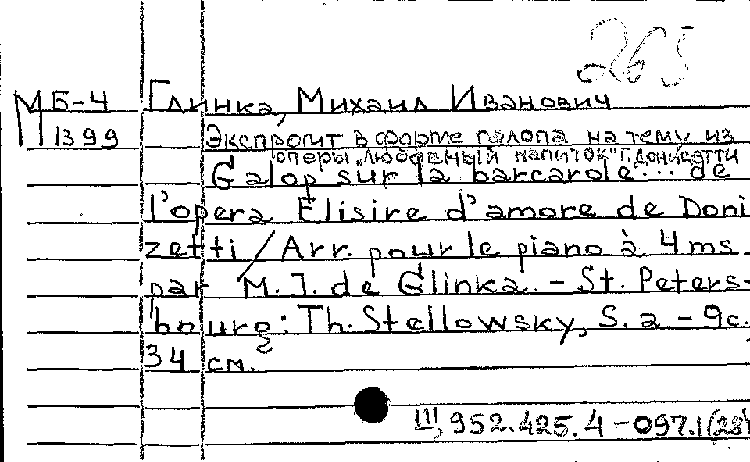 265
МБ-4 Глинка, Михаил Иванович
1399 Экспромт в форме галопа на тему из
оперы „Любовный напиток" Г. Доницетти
Galop sur la barcarole... de
l'opera Elisire d'amore de Doni
zetti / Arr. pour le piano à 4 ms.
par M. J. de Glinka. - St. Peters-
bourg: Th. Stellowsky, S. a - 9 с.
34 см.
III, 952.425.4-097.1(28)